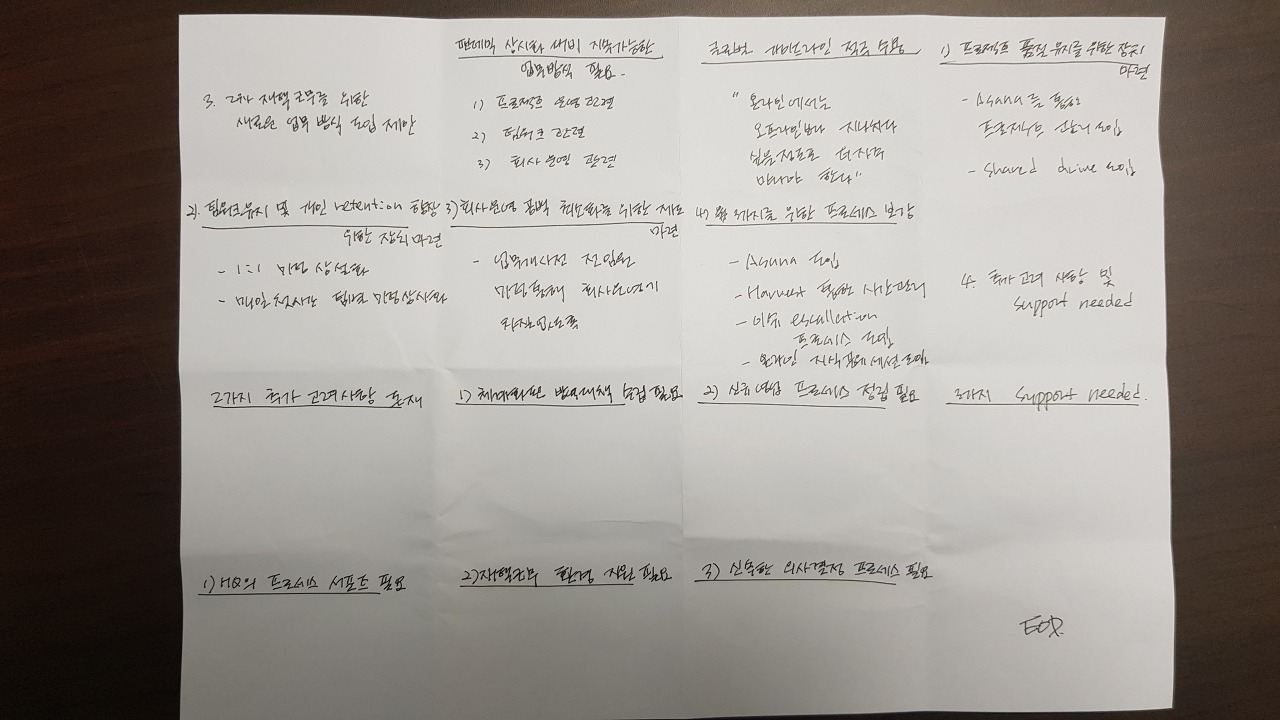 3. 2차 재택근무를 위한
새로운 업무 방식 도입 제안
판데믹 상시화 대비 지속가능한
업무방식 필요.
1) 프로젝트 운영 관련
2) 팀워크 관련
3) 회사 운영 관련
글로벌 가이드라인 적극 수용
"온라인에서는
오프라인보다 지나치다
싶을정도로 더 자주
만나야 한다"
1) 프로젝트 품질 유지를 위한 장치
마련
- Asana를 통한
프로젝트 관리 도입
- Shared drive 도입
2). 팀워크유지 및 개인 retention 향상
위한 장치 마련
- 1:1 미팅 상설화
- 매일 첫시간 팀별 미팅상시화
3) 회사운영 공백 최소화를 위한 제도
마련
- 업무개시전 전임원
미팅통해 회사운영기
4) 위 3가지를 위한 프로세스 보강
- Asana 도입
- Harvest 통한 시간관리
- 이슈 escallation
프로세스 도입
- 온라인 지식공유세션 도입
4. 추가 고려 사항 및
support needed
2가지 추가 고려사항 존재
1) 체계화된 방역대책 수립 필요
2) 신규영업 프로세스 정립 필요
3가지 support needed.
1) HQ의 프로세스 서포트 필요
2) 재택근무 환경 지원 필요
3) 신속한 의사결정 프로세스 필요
EOD.